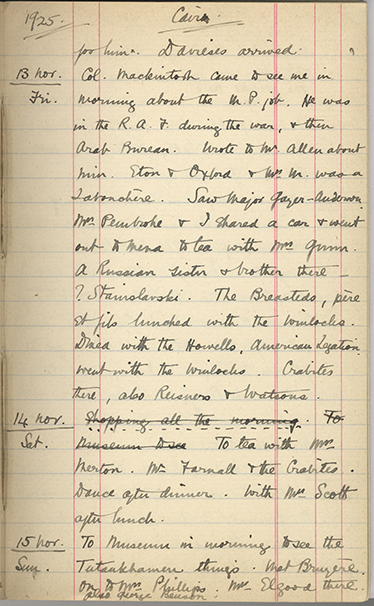 1925. Cairo.
for him. Davieses arrived.
13 Nov. Col. Mackintosh came to see me in
Fri. morning about the M.P. job. He was
in the R.A.F. during the war, & then
Arab Bureau. Wrote to Mr. Allen about
him. Eton & Oxford & Mrs M. was a
Labouchere. Saw Major Gayer-Anderson
Mrs Pembroke & I shared a car & went
out to Mena to tea with Mrs Gunn.
A Russian sister & brother there —
? Stanislavski. The Breasteds, père
et fils lunched with the Winlocks.
Dined with the Howells, American Legation
went with the Winlocks. Crabites
there, also Reisners & Watsons.
14 Nov. Shopping all the morning. To
Sat. Museum to see To tea with Mrs
Merton. Mr Farnall & the Crabites.
Dance after dinner. With Mrs Scott
after lunch.
15 Nov. To Museum in morning to see the
Sun. Tutankhamen things. Met Bruyère.
On to Mrs Phillips. Mrs Elgood there.
also George Benson